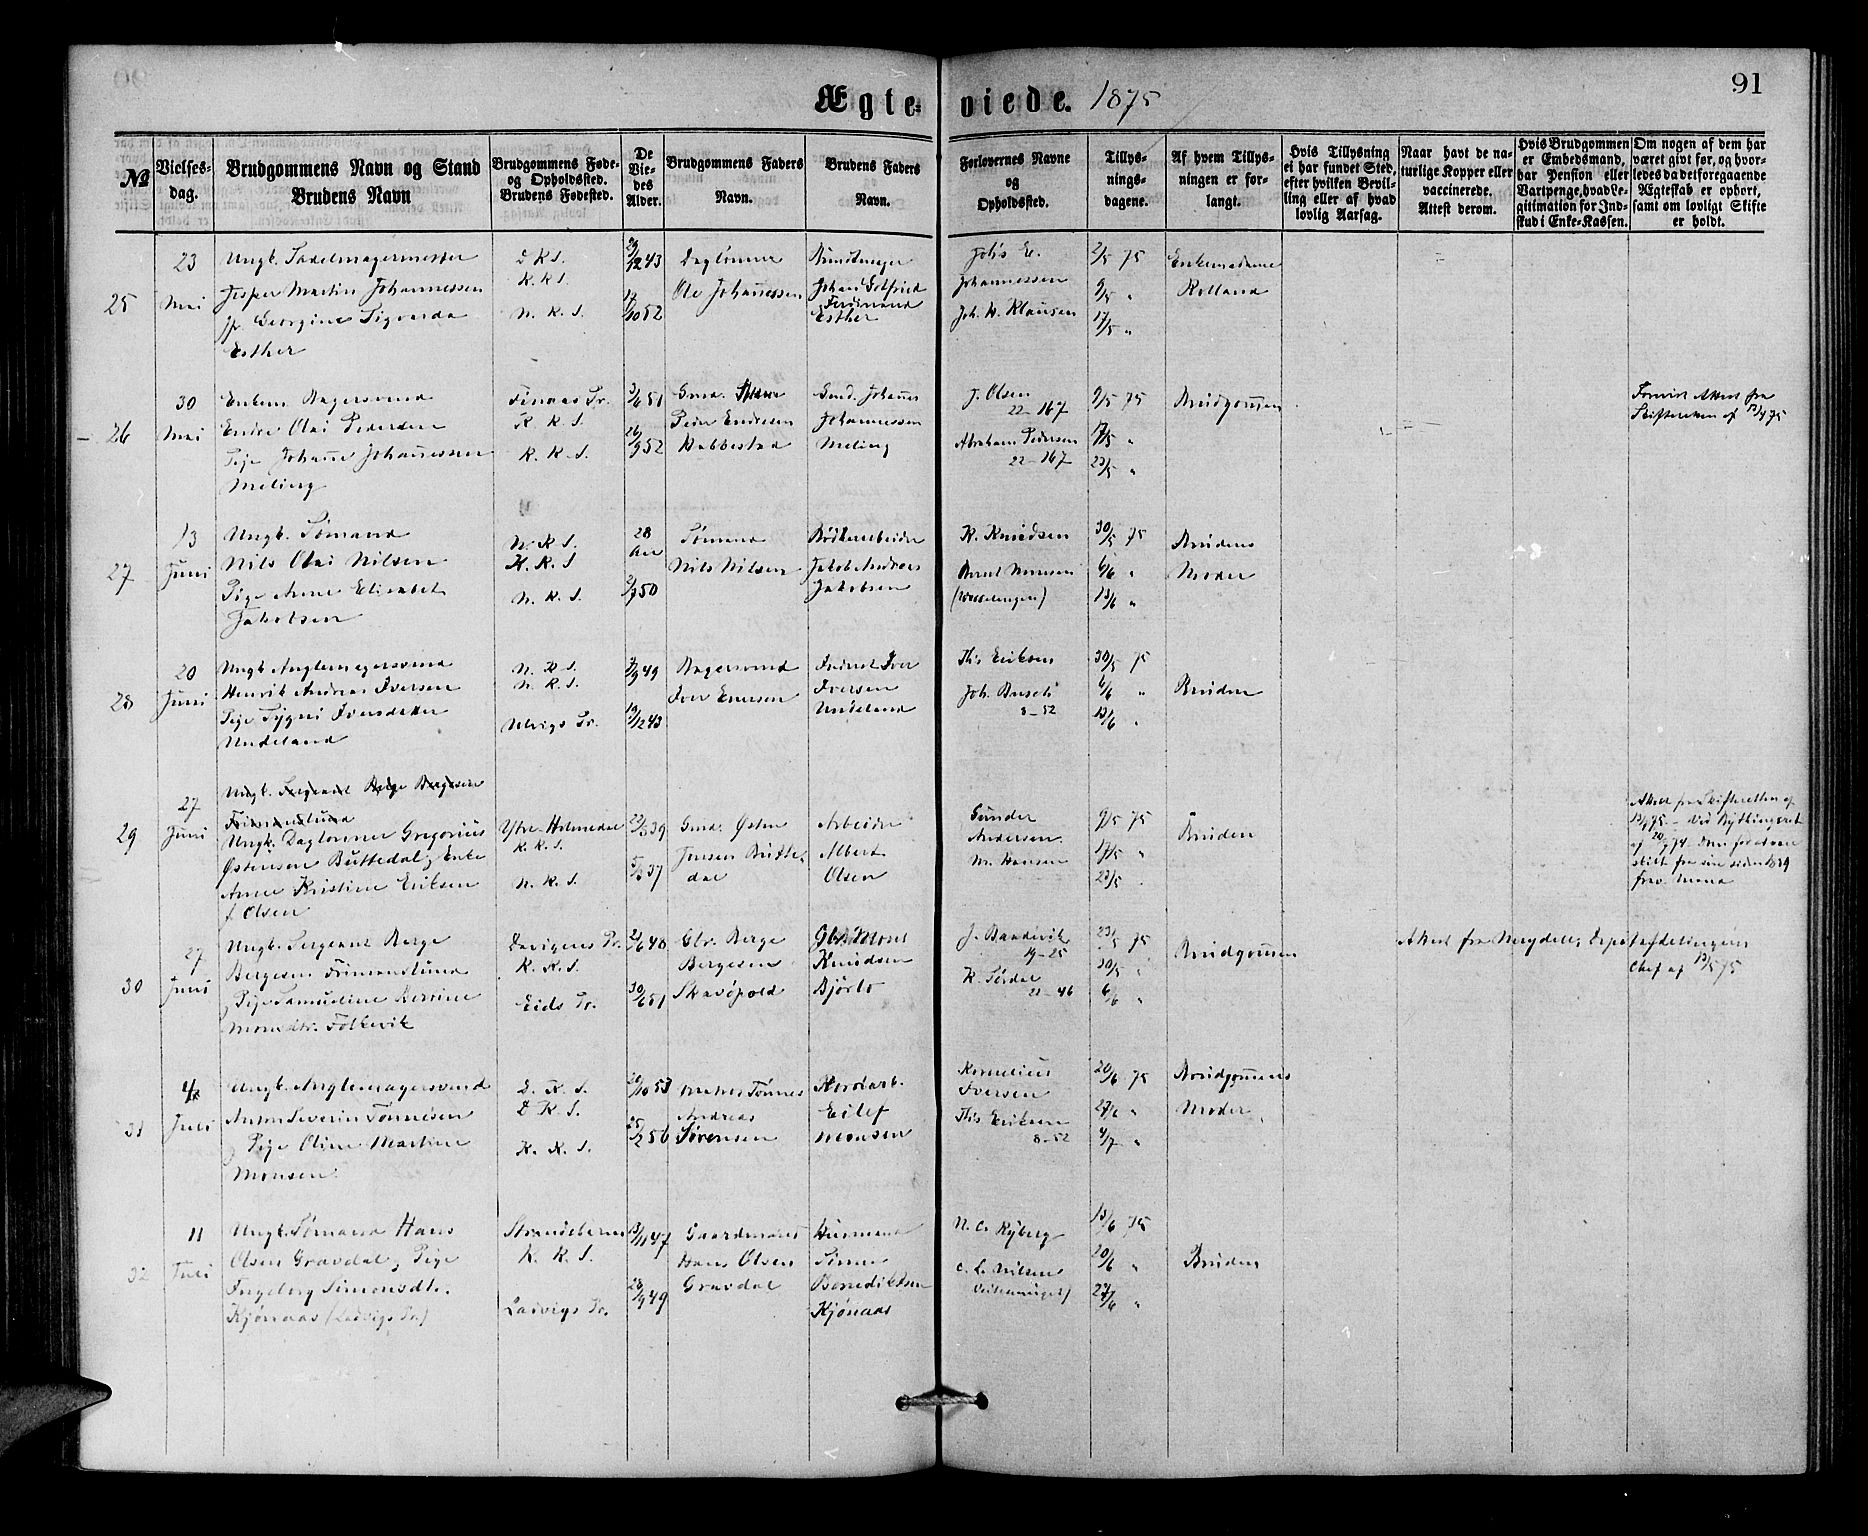 Ægteviede. 1875
91
№
Vielsesdag.
Brudgommens Navn og Stand
Brudens Navn
Brudgommens Føde- og Opholdssted.
Brudens Fødested.
De Viedes Alder.
Brudgommens Faders Navn.
Brudens Faders Navn.
Forlovernes Navne og Opholdssted.
Tillysningsdagene.
Af hvem Tillysningen er forlangt.
Hvis Tillysning ei har fundet Sted, efter hvilken Bevilling eller af hvad lovlig Aarsag.
Naar havt de naturlige Kopper eller vaccinerede. Attest derom.
Hvis Brudgommen er Embedsmand, har Pension eller Vartpenge, hvad Legitimation for Indskud i Enke-Kassen.
Om nogen af dem har været gift før, og hvorledes da det foregaaende Ægteskab er ophørt, samt om lovligt Skifte er holdt.
25
23 Mai
Ungk. Sadelmagermester
Jesper Martin Johannessen
Georgine Sigvarda
Esther
D. K. S.
K. K. S.
N. K. S.
29/12 43
17/10 52
Daglønner
Ole Johannessen
Johan Gotfried
Ferdinand
Esther
Johs E.
Johannessen
Joh. W. Klausen
2/5 75
9/5 "
17/5 "
Enkemadame
Rolland
26
30 Mai
Enkem. Bagersvend
Endre Olai Pedersen
Pige Johanne Johannessen
Meling
Finaas Pr.
K. K. S.
K. K. S.
3/6 51
26/9 52
Gmd.
Peder Endresen
Habbestad
Gmd. Johannes
Johannessen
Meling
J. Olsen
22-167
Abraham Pedersen
22-167
9/5 75
17/5 "
23/5 "
Brudgommen
Forevist Attest fra
Skifteretten af 13/4 75
27
13 Juni
Ungk. Sømand
Nils Olai Nilsen
Pige Anne Elisabet
Jakobsen
N. K. S.
K. K. S.
N. K. S.
28 Aar
2/7 50
Sømand
Nils Nilsen
Bødkerarbeider
Jakob Andreas
Jakobsen
K. Knudsen
Bernt Monsen
30/5 75
6/6 "
13/6 "
Brudens
Moder
28
20 Juni
Ungk. Anglemagersvend
Henrik Andreas Iversen
Pige Sygni Iversdatter
Undeland
N. K. S.
N. K. S.
Ulvigs Pr.
9/9 49
19/12 43
Bagersvend
Iver Enersen
Iver
Iversen
Undeland
Ths Eriksen
Joh. Busch
8-52
30/5 75
6/6 "
13/6 "
Bruden
29
27 Juni
Ungk. Sergeant Berge Bergesen
Frimanslund
Ungk. Daglønner Gregorius
Østensen Buttedal, Enke
Anne Kristine Eriksen
f. Olsen
Ytre-Holmedal
K. K. S.
N. K. S.
22/3 39
5/3 37
Gmd. Østen
Jensen Buttedal
Arbeider
Albert
Olsen
Gunder
Andersen
M. Hansen
9/5 75
17/5 "
23/5
Bruden
Attest fra Skifteretten af
30
27 Juni
Ungk. Sergeant Berge
Bergesen Frimanslund
Pige Samueline Berrine
Monsdtr. Folkevik
Davigens Pr.
K. K. S.
Eids Pr.
21/6 48
30/6 51
Gbr. Berge
Bergesen
Skavøpold
Gbr. Mons
Knudsen
Bjørlo
J. Baadsvik
19-25
K. Sørdal
21-46
23/5 75
30/5 "
6/6 "
Brudgommen
Attest fra
Chef af 13/5 75
31
4 Juli
Ungk. Anglemagersvend
Anton Severin Tønnesen
Pige Oline Martine
Monsen
D. K. S.
D. K. S.
K. K. S.
20/10 53
25/2 56
Tønnes
Andreas
Sørensen
Eilef
Monsen
Kornelius
Iversen
Ths Eriksen
8-52
20/6 75
27/6 "
4/7 "
Brudgommens
Moder
32
11 Juli
Ungk. Sømand Hans
Olsen Gravdal, Pige
Ingeborg Simonsdtr.
Kjønaas (Ladvigs Pr.)
Strandebarm
K. K. S.
Ladvigs Pr.
13/11 47
28/9 49
Gaardmand
Hans Olsen
Gravdal
Husmand
Simon
Benediktsen
Kjønaas
N. C. Ryberg
C. L. Nilsen
13/6 75
20/6 "
27/6 "
Bruden